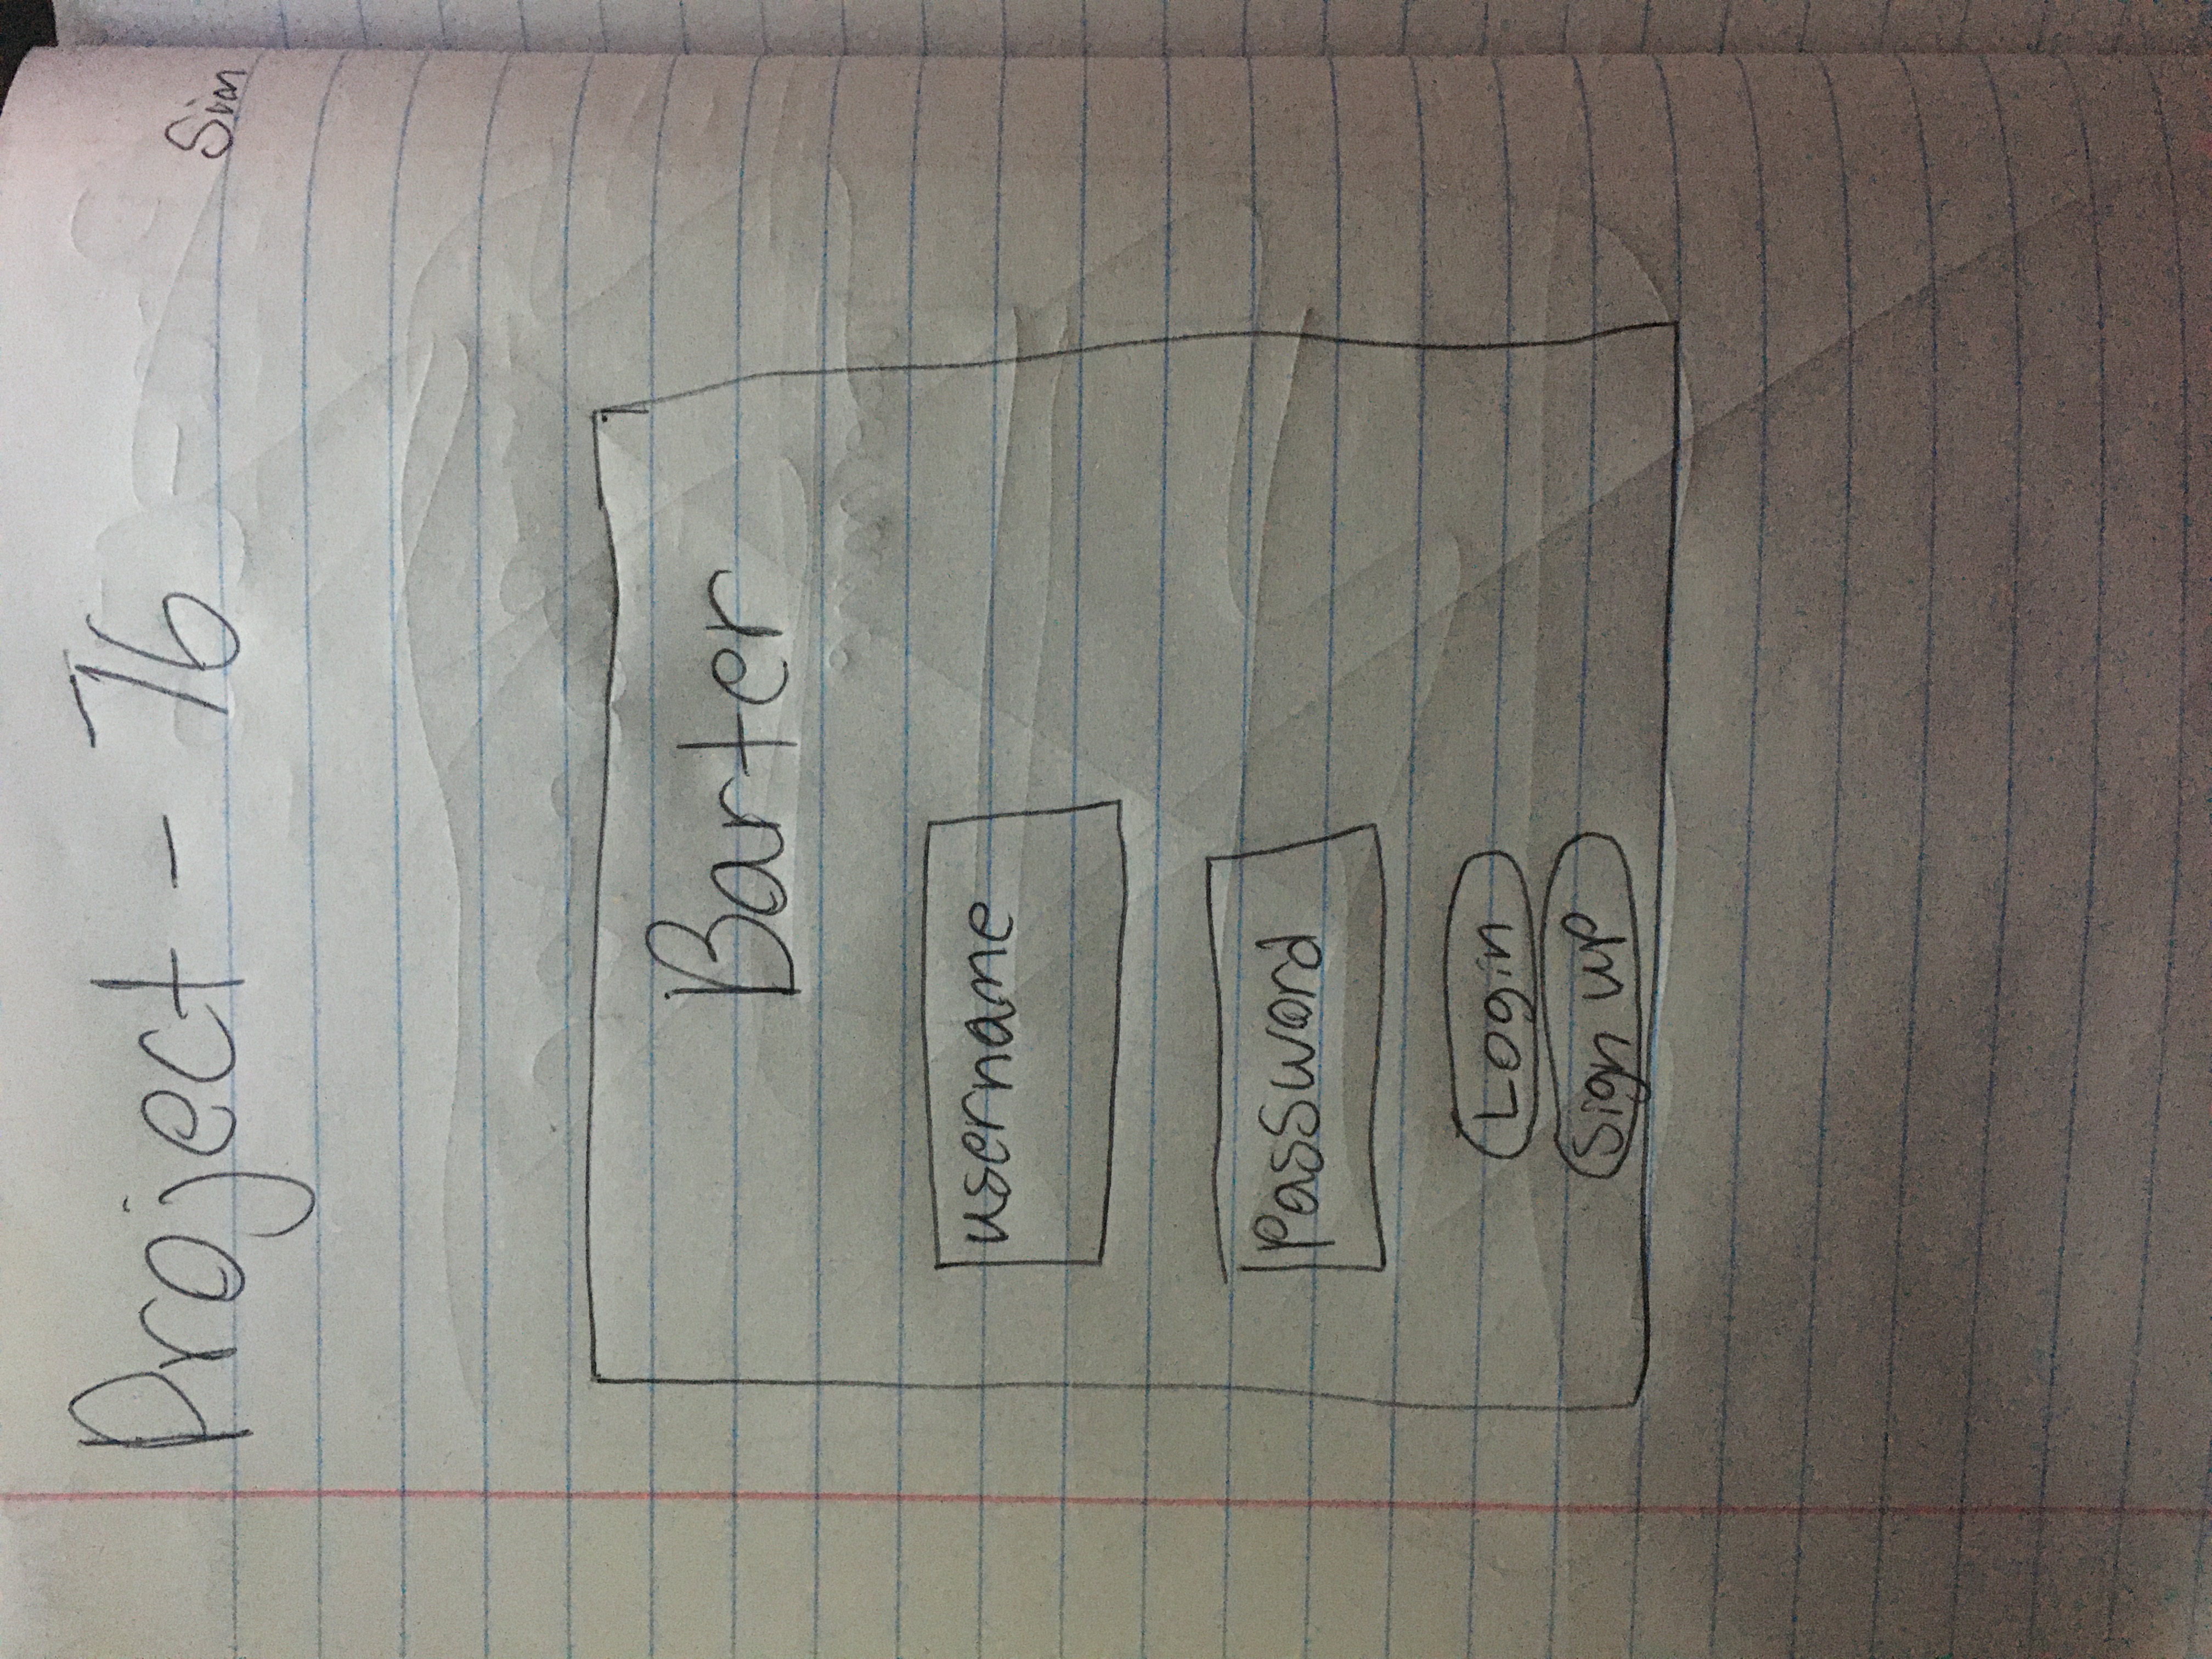 Project - 76
Barter
username
Password
Login
Sign up